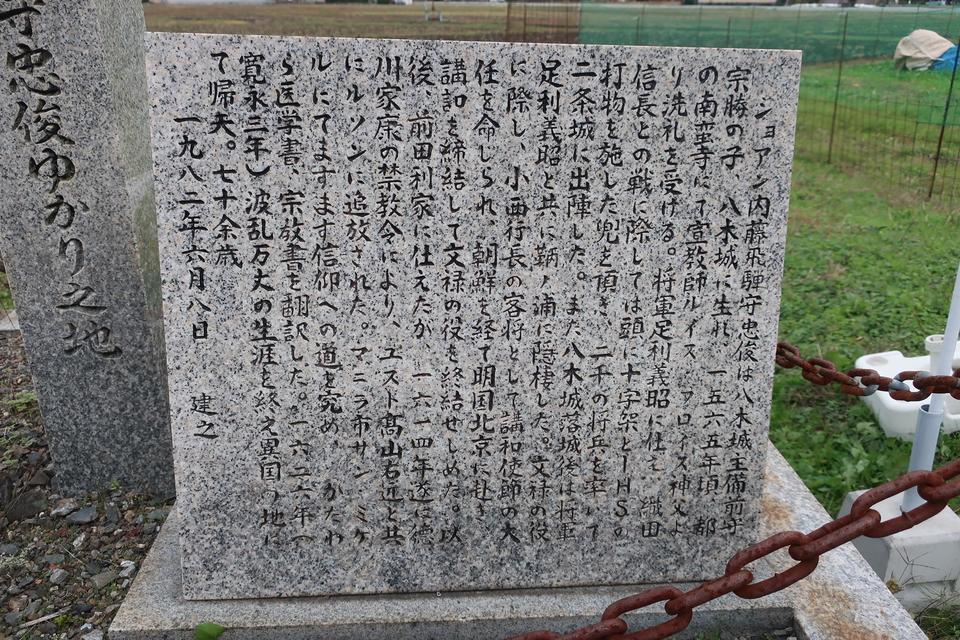 ジョアン内藤飛騨守忠俊は八木城主備前守
宗勝の子 八木城に生れ 一五六五年頃 都
の南蛮寺にて宣教師ルイス フロイス神父よ
り洗礼を受ける。将軍足利義昭に仕え 織田
信長との戦に際しては頭に十字架とIHSの
打物を施した兜を頂き、二千の将兵を率いて
二条城に出陣した。また八木城落城後は将軍
足利義昭と共に鞆ノ浦に隠棲した。文禄の役
に際し、小西行長の客将として講和使節の大
任を命じられ、朝鮮を経て明国北京に赴き
講和を締結して文禄の役を終結せしめた。以
後、前田利家に仕えたが 一六一四年遂に徳
川家康の禁教令により、ユスト高山右近と共
にルソンに追放された。マニラ市サン・ミゲ
ルにてますます信仰への道を究め かたわ
ら医学書、宗教書を翻訳した。一六二六年(
寛永三年)波乱万丈の生涯を終え異国の地に
て帰天。七十余歳
一九八二年六月八日 建之
守忠俊ゆかり之地